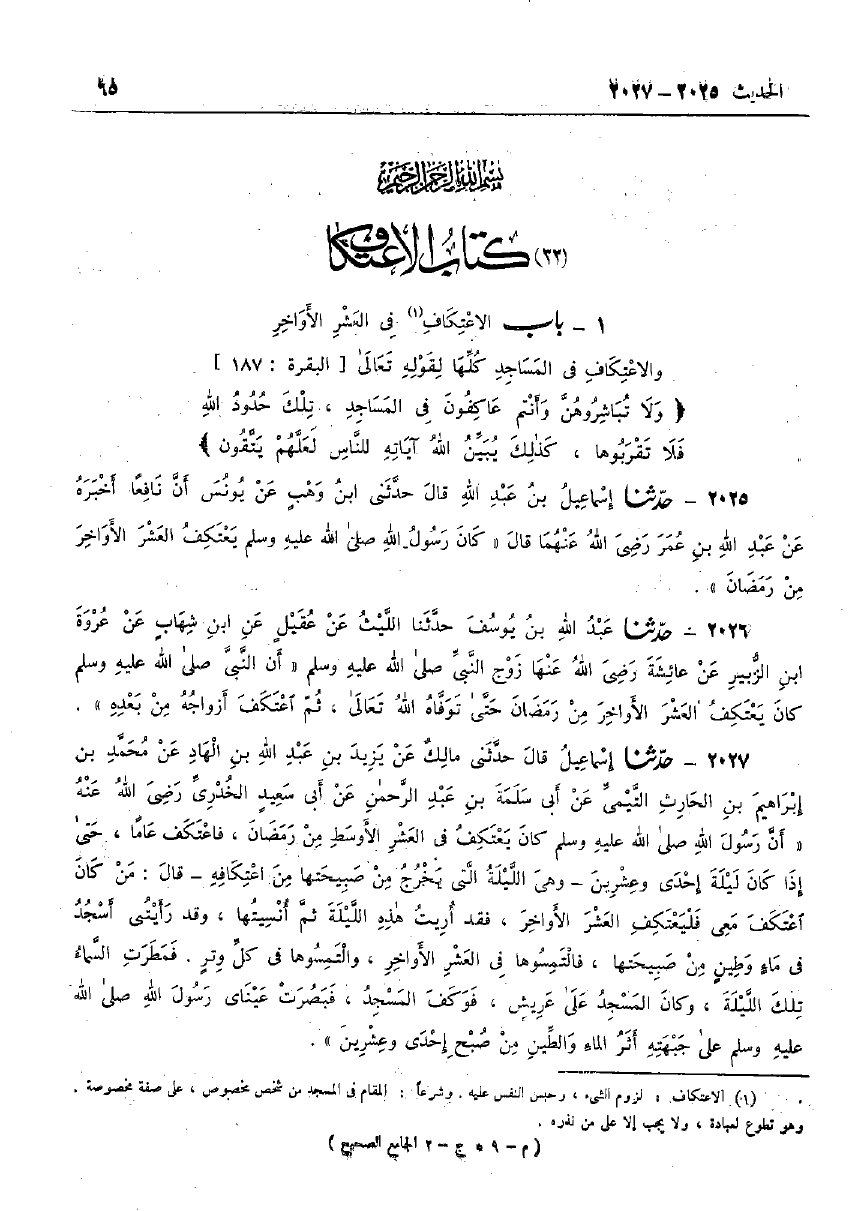 الحديث ٢٠٢٥ – ٢٠٢٧ ٦٥
بسم الله الرحمن الرحيم
(٣٣) كتاب الاعتكاف
١ – باب الاعْتِكَافِ(١) فى العَشْرِ الأَوَاخِرِ
والاعْتِكَافِ فى المَسَاجِدِ كُلِّهَا لِقَوْلِهِ تَعَالَىٰ [ البقرة : ١٨٧ ]
﴿ وَلَا تُبَاشِرُوهُنَّ وَأَنْتُم عَاكِفُونَ فِى المَسَاجِدِ ، تِلْكَ حُدُودُ اللهِ
فَلَا تَقْرَبُوها ، كَذٰلِكَ يُبَيِّنُ اللهُ آيَاتِهِ للنَّاسِ لَعَلَّهُمْ يَتَّقُون ﴾
٢٠٢٥ – حدّثنا إسْمَاعِيلُ بنُ عَبْدِ اللهِ قالَ حدَّثَنى ابنُ وَهْبٍ عَنْ يُونُسَ أَنَّ نَافِعًا أَخْبَرَهُ
عَنْ عَبْدِ اللهِ بنِ عُمَرَ رَضِىَ اللهُ عَنْهُمَا قالَ « كَانَ رَسُولُ اللهِ صلىٰ الله عليهِ وسلم يَعْتَكِفُ العَشْرَ الأَوَاخِرَ
مِنْ رَمَضَانَ » .
٢٠٢٦ – حدّثنا عَبْدُ اللهِ بنُ يُوسُفَ حدَّثَنا اللَّيْثُ عَنْ عُقَيْلٍ عَنِ ابنِ شِهَابٍ عَنْ عُرْوَةَ
ابنِ الزُّبيرِ عَنْ عائِشَةَ رَضِىَ اللهُ عَنْهَا زَوْجِ النَّبىِّ صلىٰ الله عليهِ وسلم « أن النَّبىَّ صلىٰ الله عليهِ وسلم
كانَ يَعْتَكِفُ العَشْرَ الأَواخِرَ مِنْ رَمَضَانَ حَتَّىٰ تَوَفَّاهُ اللهُ تَعَالَىٰ ، ثُمَّ اعْتَكَفَ أزواجُهُ مِنْ بَعْدِهِ » .
٢٠٢٧ – حدّثنا إسْمَاعِيلُ قالَ حدَّثَنى مالِكٌ عَنْ يَزِيدَ بنِ عَبْدِ اللهِ بنِ الْهَادِ عَنْ مُحَمَّدِ بنِ
إبْرَاهيمَ بنِ الحَارِثِ التَّيْمِىِّ عَنْ أَبى سَلَمَةَ بنِ عَبْدِ الرَّحمٰنِ عَنْ أبى سَعِيدٍ الخُدْرِىِّ رَضِىَ اللهُ عَنْهُ
« أَنَّ رَسُولَ اللهِ صلىٰ الله عليهِ وسلم كانَ يَعْتَكِفُ فى العَشْرِ الأَوْسَطِ مِنْ رَمَضَانَ ، فاعْتَكَفَ عَامًا ، حَتىٰ
إِذَا كَانَ لَيْلَةَ إحْدَى وعِشْرِينَ – وهىَ اللَّيْلَةُ الَّتى يَخْرُجُ مِنْ صَبِيحَتها مِنَ اعْتِكَافِهِ – قالَ : مَنْ كَانَ
اعْتَكَفَ مَعِى فَلْيَعْتَكِفِ العَشْرَ الأَواخِرَ ، فقد أُرِيتُ هٰذِهِ اللَّيْلَةَ ثمَّ أُنْسِيتُها ، وقد رَأَيْتُنى أَسْجُدُ
فى مَاءٍ وَطِينٍ مِنْ صَبِيحَتها ، فالْتَمِسُوها فى العَشْرِ الأَواخِرِ ، والْتَمِسُوها فى كلِّ وِترٍ . فَمَطَرَتِ السَّماءُ
تِلكَ اللَّيْلَةَ ، وكانَ المَسْجِدُ عَلَىٰ عَرِيشٍ ، فَوَكَفَ المَسْجِدُ ، فَبَصُرَتْ عَيْنَاىَ رَسُولَ اللهِ صلىٰ الله
عليهِ وسلم علىٰ جَبْهَتِهِ أَثَرُ الماءِ وَالطِّينِ مِنْ صُبْحِ إِحْدَى وعِشْرِينَ » .
(١) الاعتكاف : لزوم الشىء ، وحبس النفس عليه . وشرعاً : المقام فى المسجد من شخص مخصوص ، على صفة مخصوصة .
وهو تطوع لعبادة ، ولا يجب إلا على من نذره .
( م – ٩ * ج – ٢ الجامع الصحيح )